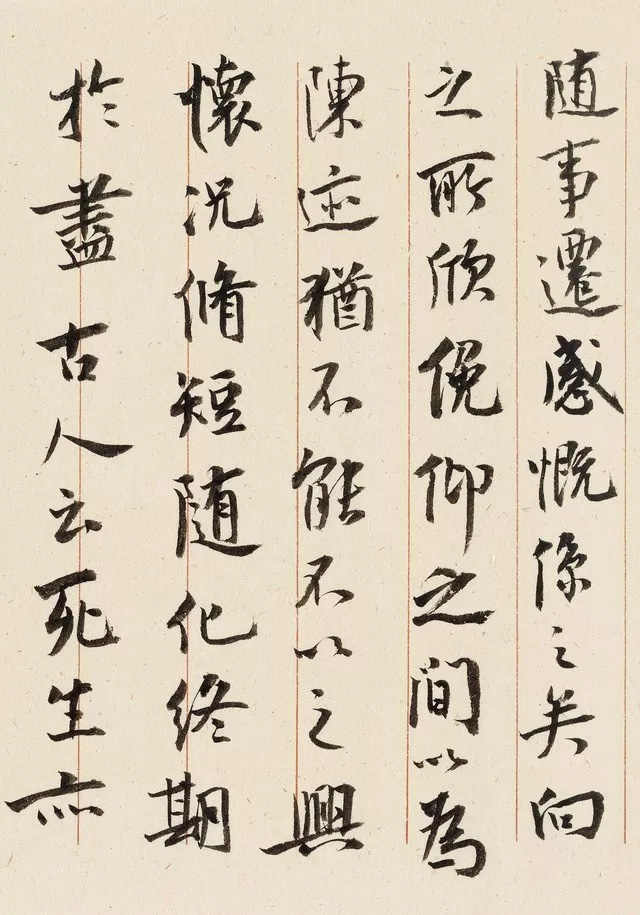 随事遷感慨係之矣向
之所欣俛仰之間以為
陳迹猶不能不以之興
懷況脩短随化終期
於盡古人云死生亦